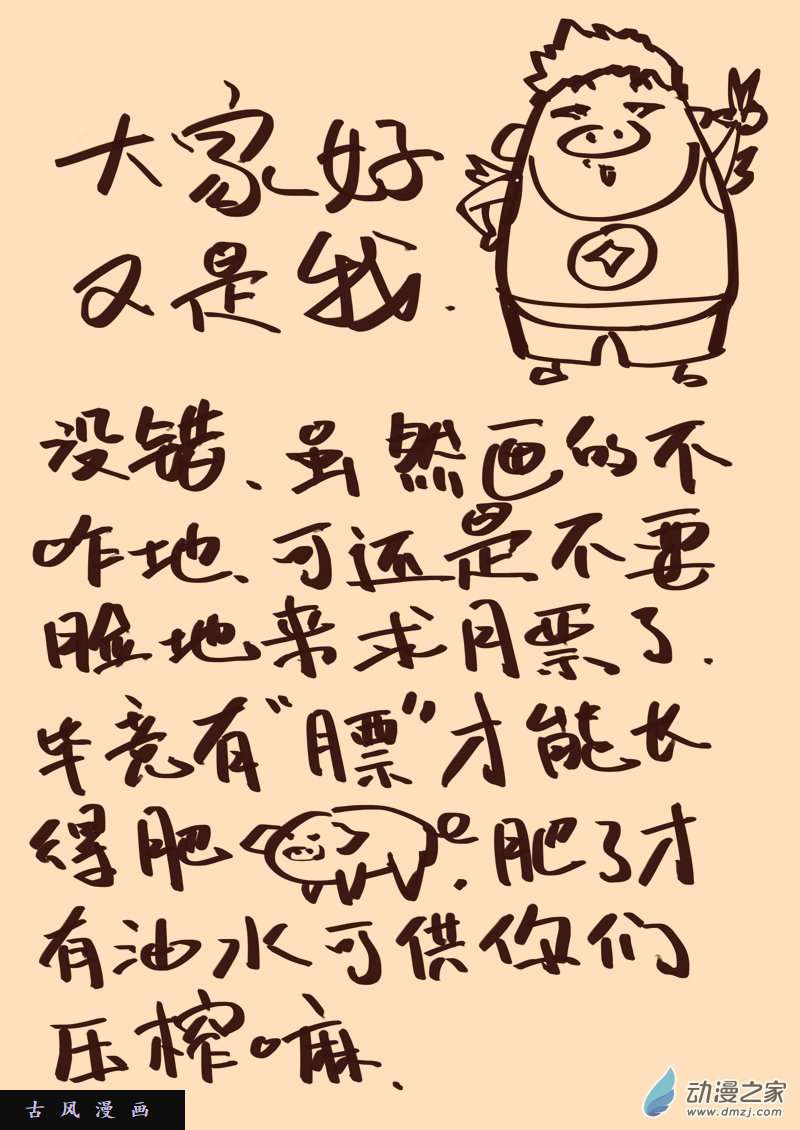 大家好
又是我.
没错、虽然画的不
咋地、可还是不要
脸地来求月票了.
毕竟有“膘”才能长
得肥.肥了才
有油水可供你们
压榨嘛.
古风漫画
动漫之家
www.dmzj.com